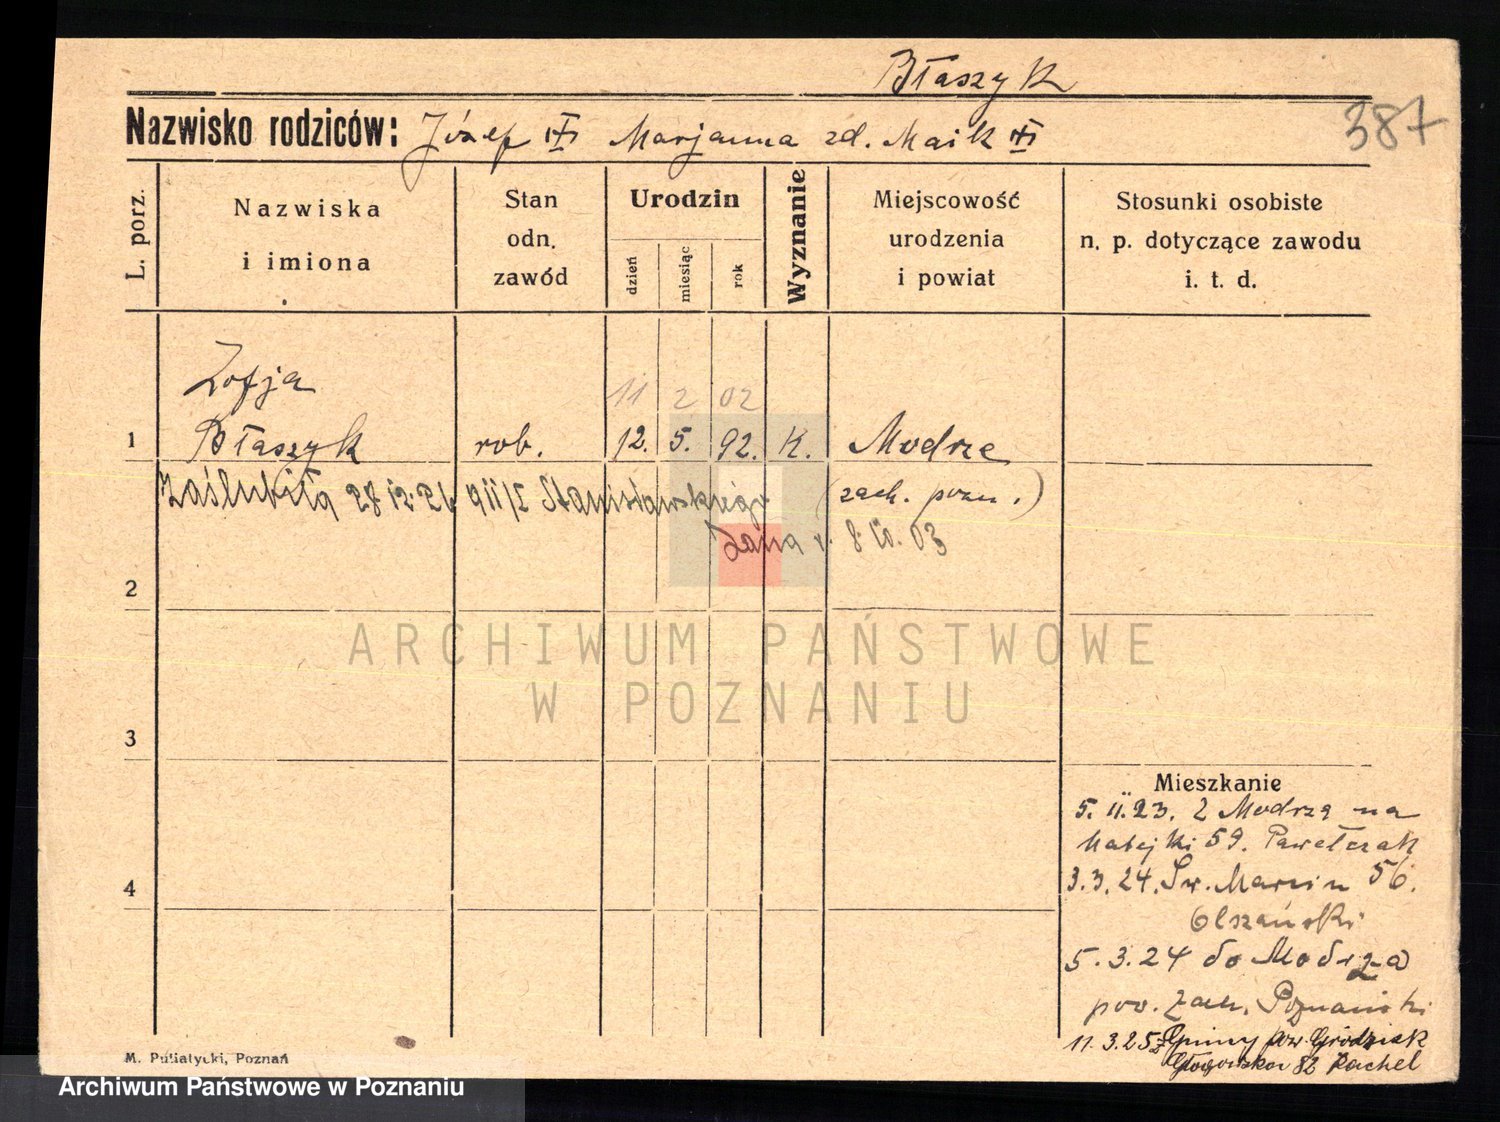 Błaszyk
387
Nazwisko rodziców: Józef Marjanna zd. Maik
L. porz.
Nazwiska i imiona
Stan odn. zawód
Urodzin
dzień
miesiąc
rok
Wyznanie
Miejscowość urodzenia i powiat
Stosunki osobiste n. p. dotyczące zawodu i. t. d.
Zofja
11 2 02
1 Błaszyk rob. 12. 5. 92. K. Modrze
Zaślubiła 28 12. 26 911/I Stanisławskiego (zach. pozn.)
Jana r. 8. 10. 03
2
ARCHIWUM PAŃSTWOWE
W POZNANIU
3
Mieszkanie
5. 11. 23. Z Modrza na
Matejki 59. Pawełczak
4
3. 3. 24. Św. Marcin 56.
Olszański
5. 3. 24 do Modrza
pow. zach. Poznański
11. 3. 25 z pow. Grodzisk
Głogowska 82 Rachel
M. Putiatycki, Poznań
Archiwum Państwowe w Poznaniu